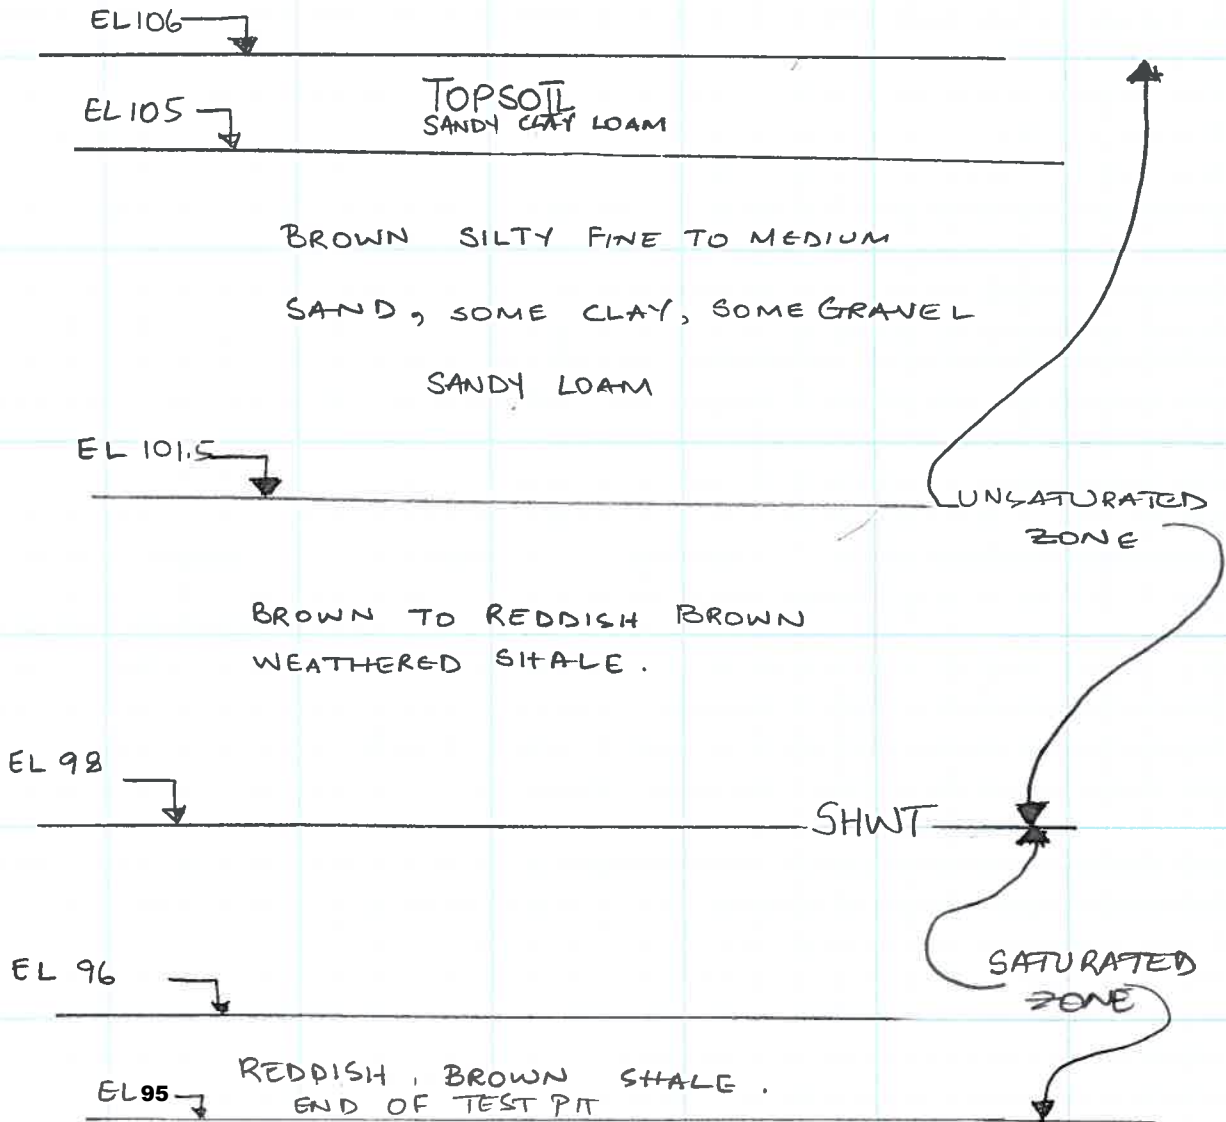 EL106
EL 105
TOPSOIL
SANDY CLAY LOAM
BROWN SILTY FINE TO MEDIUM
SAND, SOME CLAY, SOME GRAVEL
SANDY LOAM
EL 101.5
UNSATURATED
ZONE
BROWN TO REDDISH BROWN
WEATHERED SHALE.
EL 98
SHWT
EL 96
SATURATED
ZONE
REDDISH, BROWN SHALE.
EL 95
END OF TEST PIT